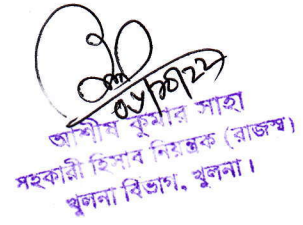 ০৬/১০/২২
আশীষ কুমার সাহা
সহকারী হিসাব নিয়ন্ত্রক (রাজস্ব)
খুলনা বিভাগ, খুলনা।